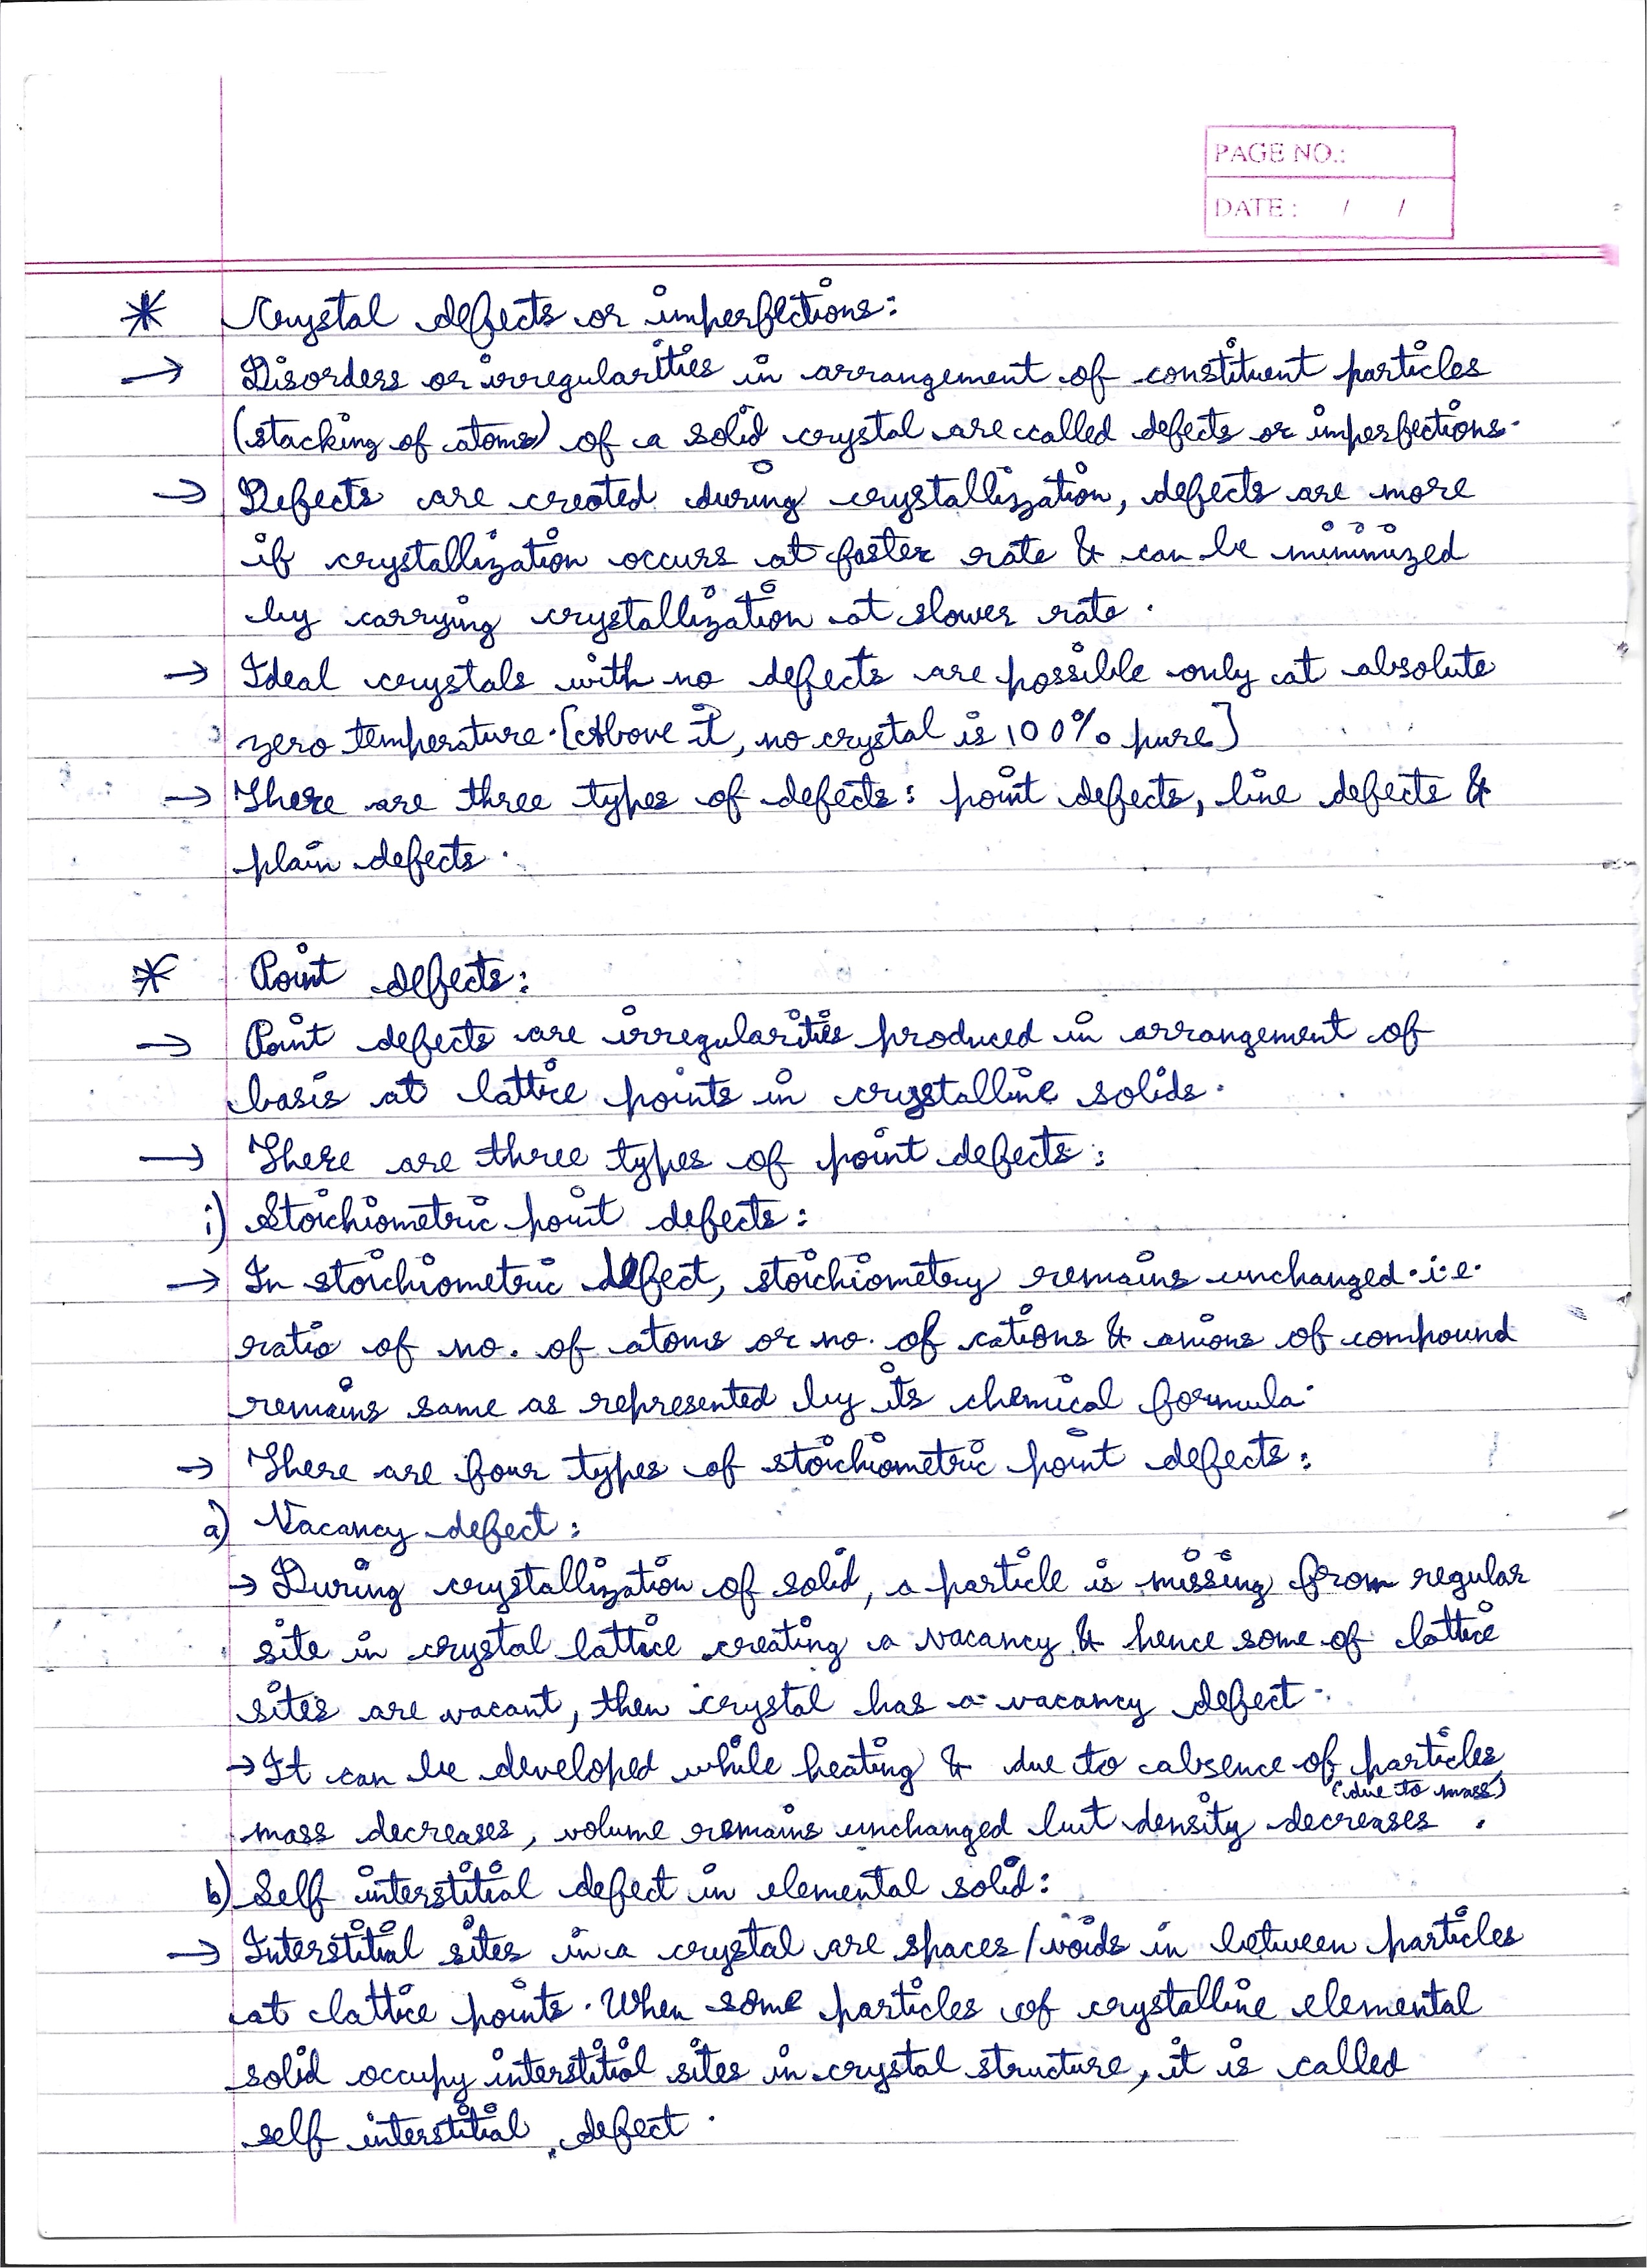 PAGE NO.:
DATE: / /
* Crystal defects or imperfections:
→ Disorders or irregularities in arrangement of constituent particles
(stacking of atoms) of a solid crystal are called defects or imperfections.
→ Defects are created during crystallization, defects are more
if crystallization occurs at faster rate & can be minimized
by carrying crystallization at slower rate.
→ Ideal crystals with no defects are possible only at absolute
zero temperature. [Above it, no crystal is 100% pure]
→ There are three types of defects: point defects, line defects &
plain defects.
* Point defects:
→ Point defects are irregularities produced in arrangement of
basis at lattice points in crystalline solids.
→ There are three types of point defects:
i) Stoichiometric point defects:
→ In stoichiometric defect, stoichiometry remains unchanged. i.e.
ratio of no. of atoms or no. of cations & anions of compound
remains same as represented by its chemical formula.
→ There are four types of stoichiometric point defects:
a) Vacancy defect:
→ During crystallization of solid, a particle is missing from regular
site in crystal lattice creating a vacancy & hence some of lattice
sites are vacant, then crystal has a vacancy defect.
→ It can be developed while heating & due to absence of particles
(due to mass)
mass decreases, volume remains unchanged but density decreases.
b) Self interstitial defect in elemental solid:
→ Interstitial sites in a crystal are spaces/voids in between particles
at lattice points. When some particles of crystalline elemental
solid occupy interstitial sites in crystal structure, it is called
self interstitial defect.